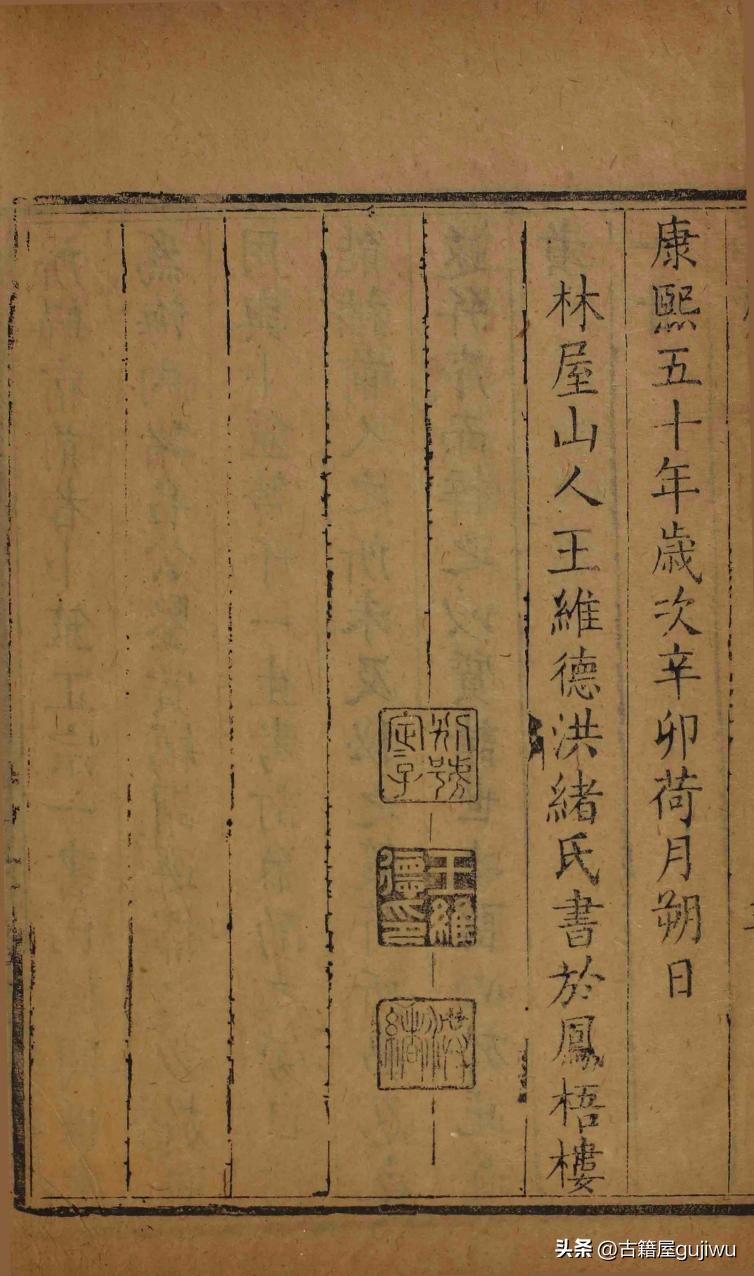 康熙五十年歲次辛卯荷月朔日
林屋山人王維德洪緒氏書於鳳梧樓
別號定子
王維德印
洪緒
头条 @古籍屋gujiwu